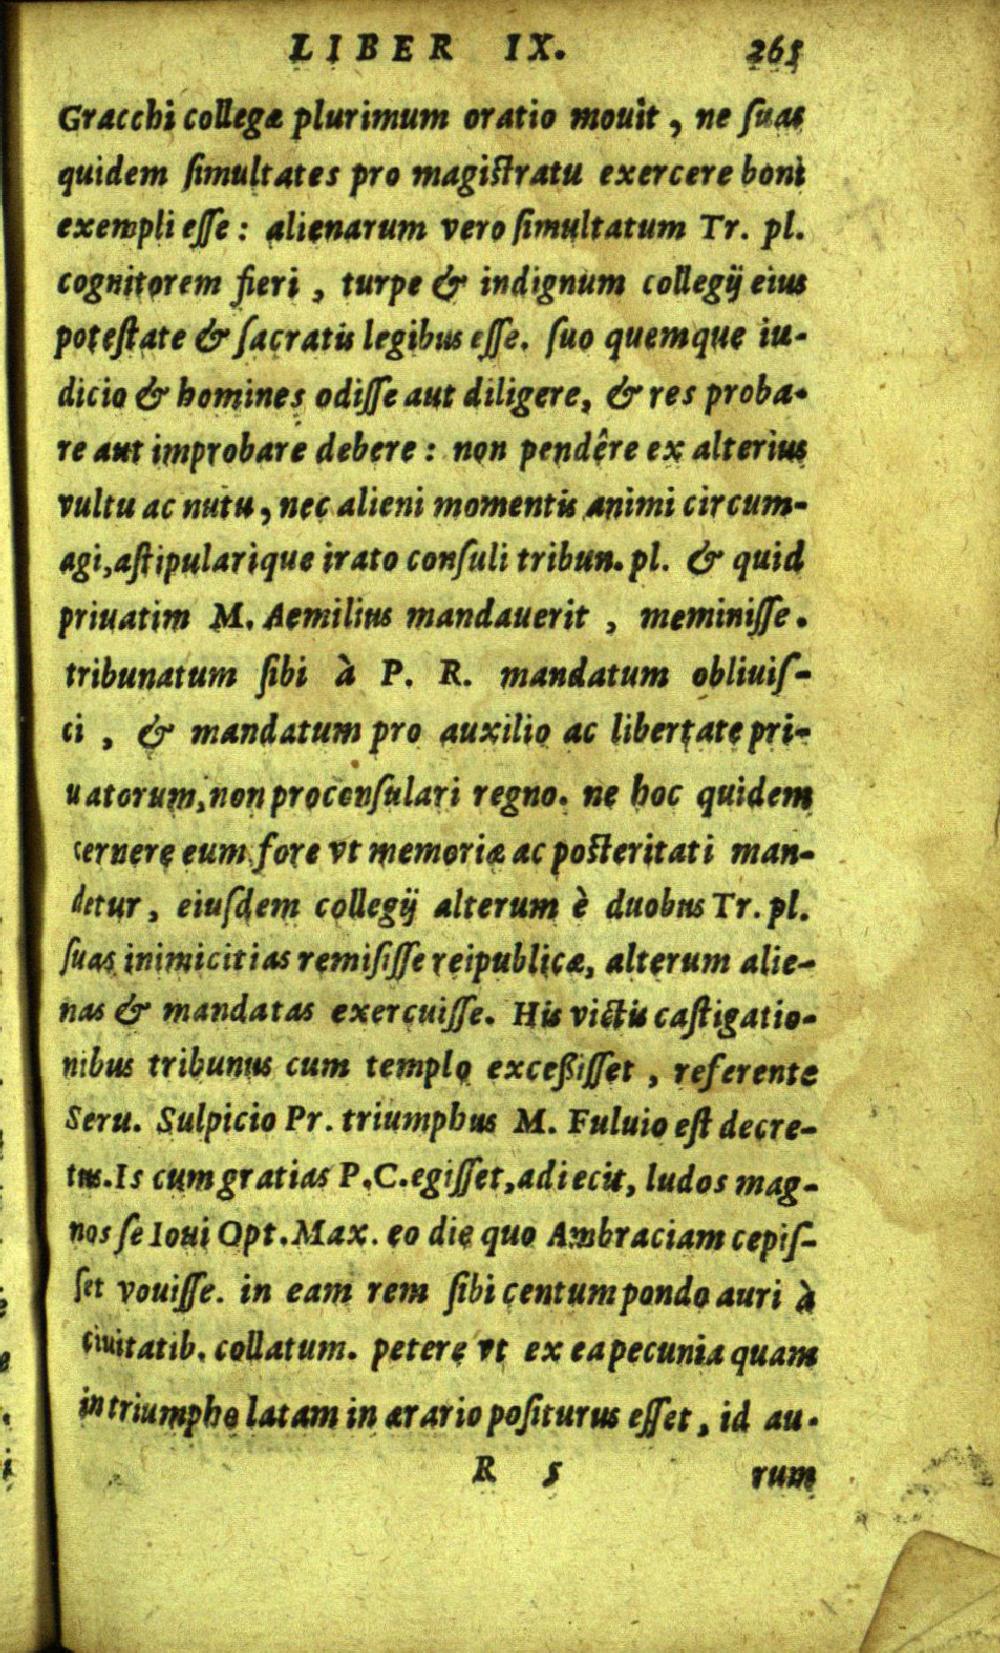 LIBER IX. 265
Gracchi collegæ plurimum oratio mouit, ne ſuas
quidem ſimultates pro magiſtratu exercere boni
exempli eſſe: alienarum vero ſimultatum Tr. pl.
cognitorem fieri, turpe & indignum collegij eius
poteſtate & ſacratis legibus eſſe. ſuo quemque iu-
dicio & homines odiſſe aut diligere, & res proba-
re aut improbare debere: non pendêre ex alterius
vultu ac nutu, nec alieni momentis animi circum-
agi, aſtipularique irato conſuli tribun. pl. & quid
priuatim M. Aemilius mandauerit, meminiſſe.
tribunatum ſibi à P. R. mandatum obliuiſ-
ci, & mandatum pro auxilio ac libertate pri-
uatorum, non proconſulari regno. ne hoc quidem
cernere eum fore vt memoriæ ac poſteritati man-
detur, eiuſdem collegij alterum è duobus Tr. pl.
ſuas inimicitias remiſiſſe reipublicæ, alterum alie-
nas & mandatas exercuiſſe. His victis caſtigatio-
nibus tribunus cum templo exceßiſſet, referente
Seru. Sulpicio Pr. triumphus M. Fuluio eſt decre-
tus. Is cum gratias P.C. egiſſet, adiecit, ludos mag-
nos ſe Ioui Opt. Max. eo die quo Ambraciam cepiſ-
ſet vouiſſe. in eam rem ſibi centum pondo auri à
ciuitatib. collatum. petere vt ex ea pecunia quam
in triumpho latam in ærario poſiturus eſſet, id au-
R 5 rum